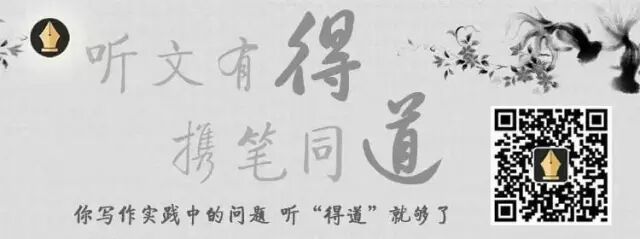 听文有得
携笔同道
你写作实践中的问题 听“得道”就够了